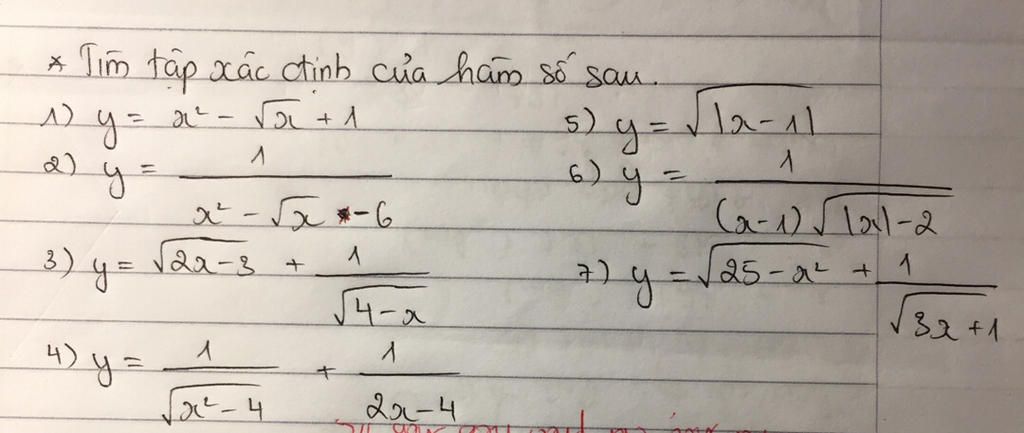 * Tìm tập xác định của hàm số sau.
1) y = x² - √x + 1
2) y = 1/(x² - √x - 6)
3) y = √(2x-3) + 1/√(4-x)
4) y = 1/√(x²-4) + 1/(2x-4)
5) y = √|x-1|
6) y = 1/((x-1)√(|x|-2))
7) y = √(25-x²) + 1/√(3x+1)